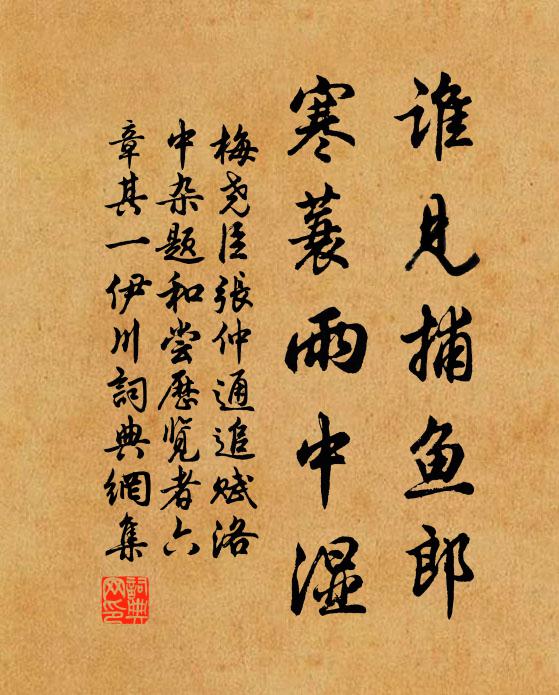 谁見捕鱼郎
寒蓑雨中湿
梅尧臣張仲通追赋洛
中杂题和尝歷览者六
章其一伊川詞典網集
詞典网印